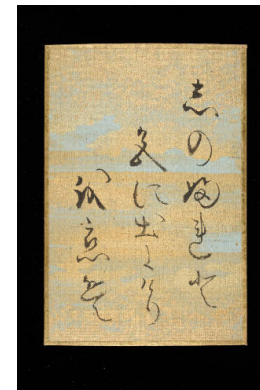 志のふれと
色に出にけり
我恋は